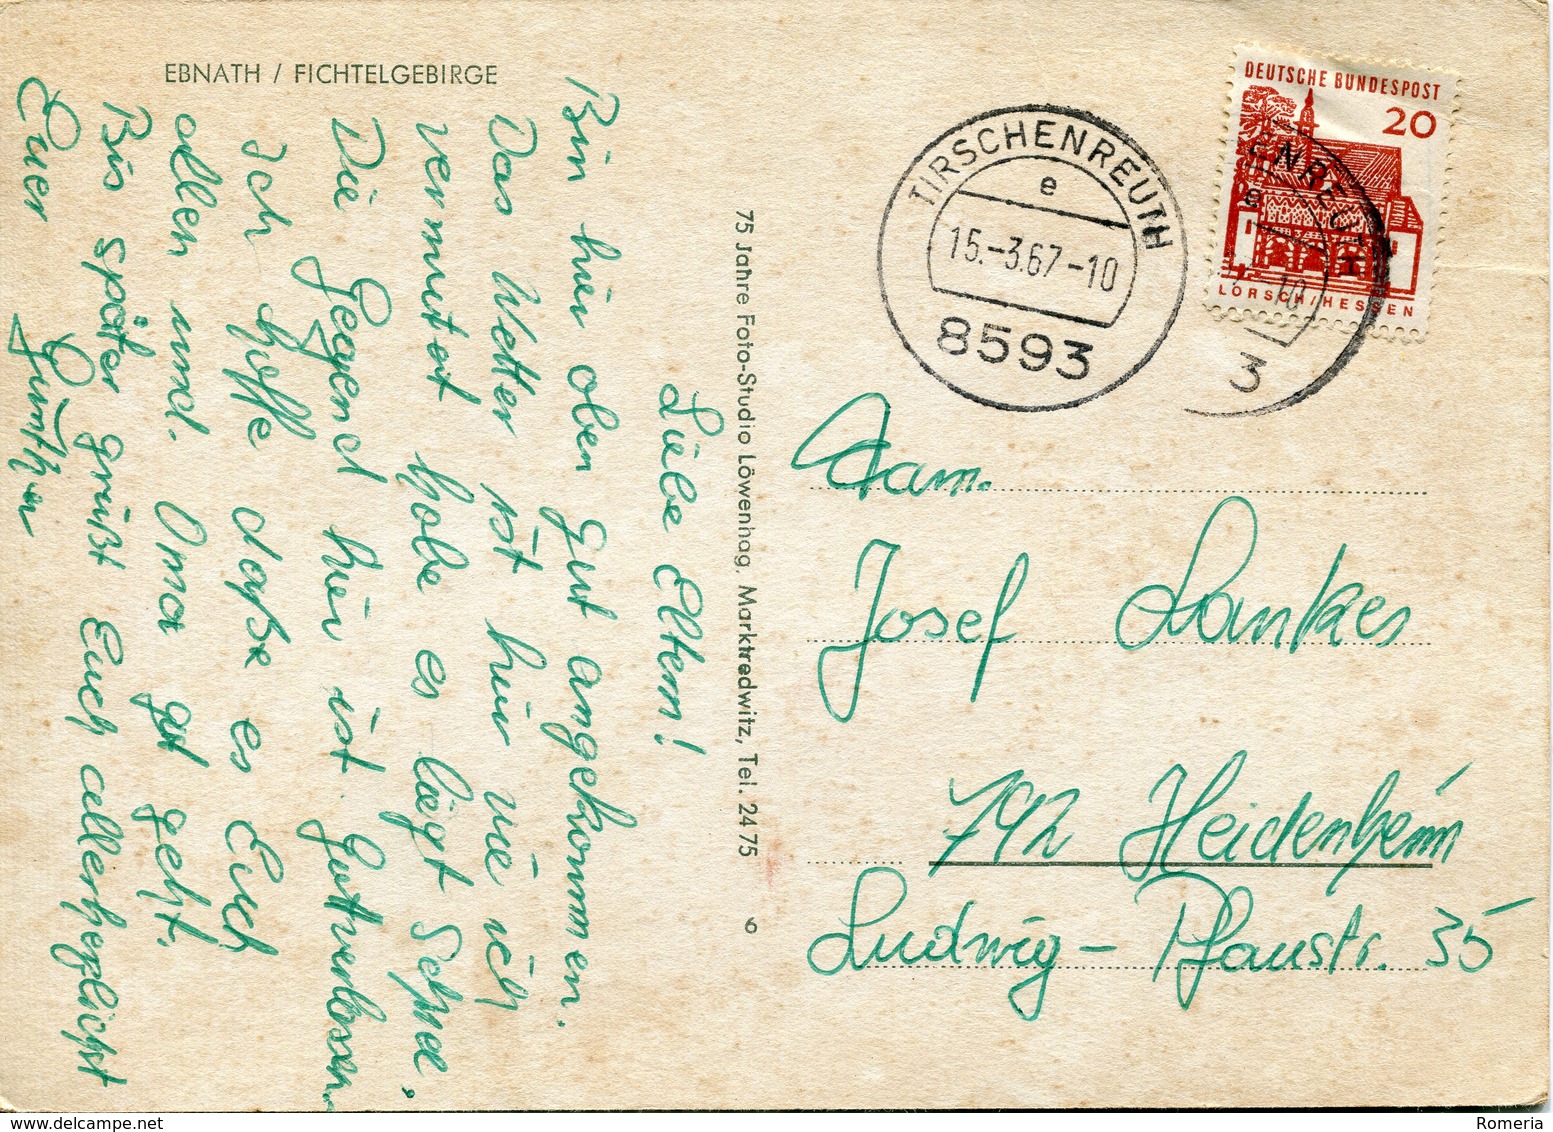 EBNATH / FICHTELGEBIRGE
Liebe Eltern!
Bin hier oben gut angekommen.
Das Wetter ist hier wie ich
vermutet habe es liegt Schnee,
Die Gegend hier ist Gottverlassen.
Ich hoffe daß es Euch
allen und Oma gut geht.
Bis später grüßt Euch allerherzlichst
Euer Günther
75 Jahre Foto-Studio Löwenhag, Marktredwitz, Tel. 2475
6
TIRSCHENREUTH
e
15.-3.67-10
8593
DEUTSCHE BUNDESPOST
20
LORSCH/HESSEN
ENREUTH
e
10
3
Fam.
Josef Lankes
792 Heidenheim
Ludwig-Pfaustr. 35
delcampe.net
Romeria